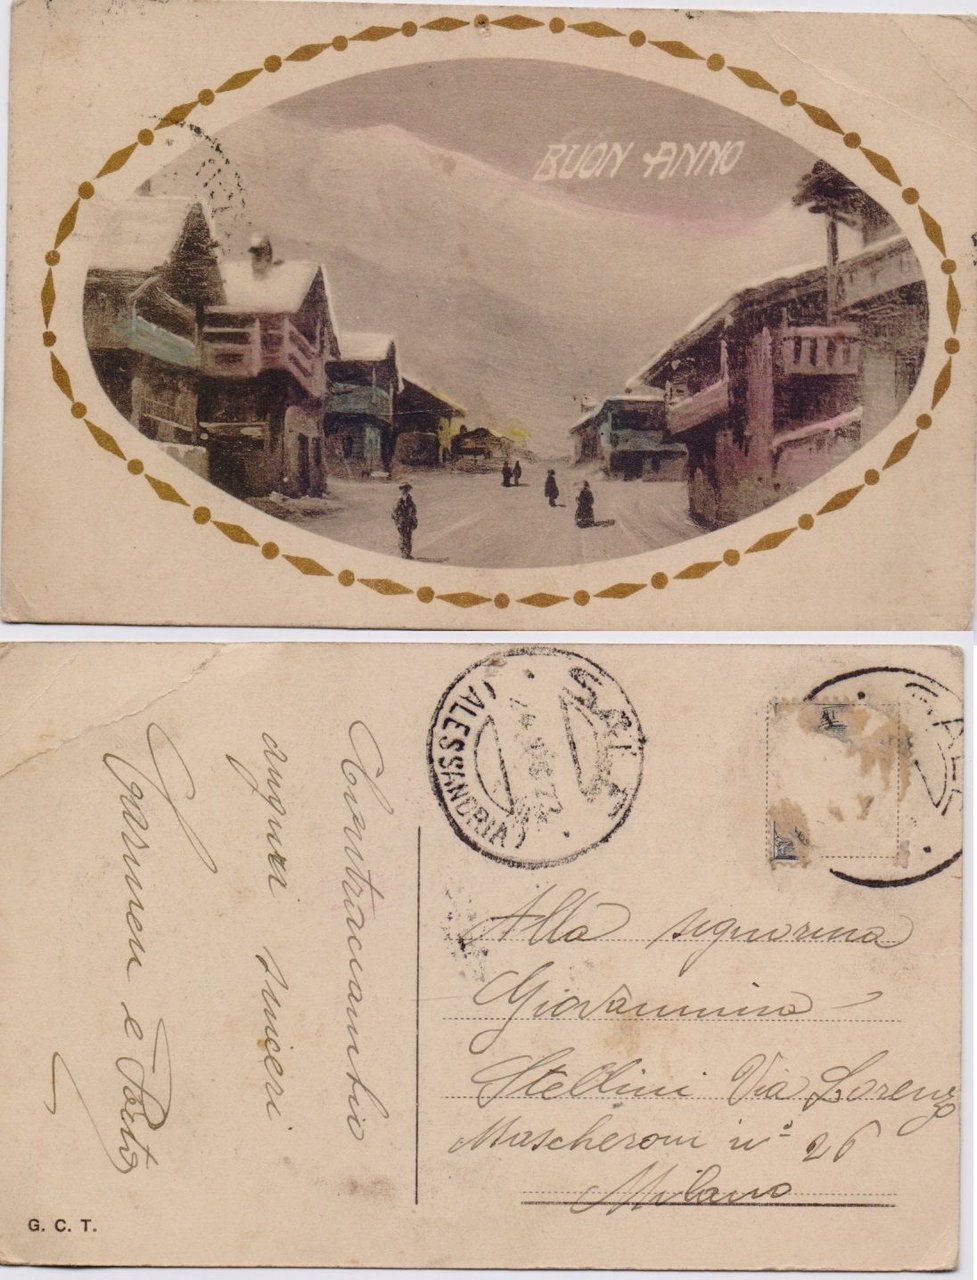 BUON ANNO
SALA
(ALESSANDRIA)
SAL
Contraccambio
auguri sinceri
Carmen e
Alla signorina
Giovannina
Stellini Via Lorenzo
Mascheroni n° 26
Milano
G. C. T.